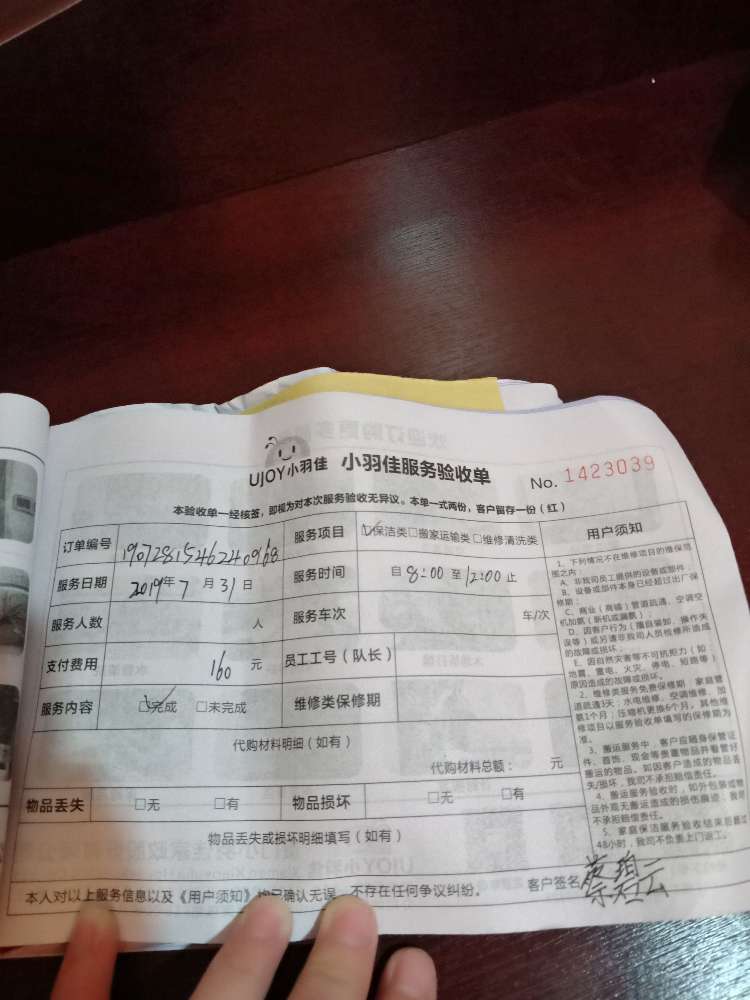 UJOY小羽佳 小羽佳服务验收单 No. 1423039
本验收单一经核签，即视为对本次服务验收无异议。本单一式两份，客户留存一份（红）
订单编号 190728154624 0968 服务项目 ☑保洁类□搬家运输类□维修清洗类
服务日期 2019年7月31日 服务时间 自8:00至12:00止
服务人数 人 服务车次 车/次
支付费用 160元 员工工号（队长）
服务内容 ☑完成 □未完成 维修类保修期
代购材料明细（如有）
代购材料总额： 元
物品丢失 □无 □有 物品损坏 □无 □有
物品丢失或损坏明细填写（如有）
本人对以上服务信息以及《用户须知》均已确认无误，不存在任何争议纠纷。 客户签名 蔡碧云
用户须知
1、下列情况不在维修项目的维保范
围之内：
A、非我司员工提供的设备或部件；
B、设备或部件本身已经超过出厂保
修期；
C、商业（商铺）管道疏通、空调空
机加氟（新机或漏氟）；
D、因客户行为（擅自装卸、操作失
误等）或另请非我司人员检修所造成
的故障或损坏；
E、因自然灾害等不可抗拒力（如：
地震、雷电、火灾、停电、短路等）
原因造成的故障或损坏。
2、维修类服务免费保修期：家庭管
道疏通3天；水电维修、空调维修、加
氟1个月；压缩机更换6个月，其他维
修项目以服务验收单填写的保修期为
准。
3、搬运服务中，客户应随身保管证
件、首饰、现金等贵重物品并看管好
搬运的物品。如因客户造成的物品丢
失/损坏，我司不承担赔偿责任。
4、搬运服务验收时，如外包装或物
品外观无搬运造成的损伤痕迹，我司
不承担赔偿责任。
5、家庭保洁服务验收结束后超过
48小时，我司不负责上门返工。